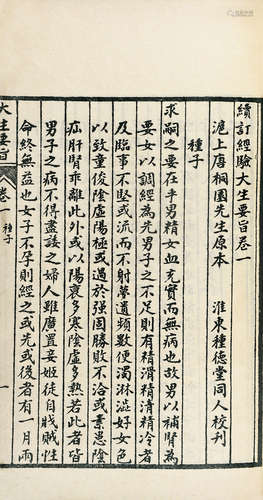 續訂經驗大生要旨卷一
滬上唐桐園先生原本　淮東種德堂同人校刊
種子
求嗣之要在乎男精女血充實而無病也故男以補腎為
要女以調經為先男子之不足則有精滑精清精冷者
及臨事不堅或流而不射夢遺頻數便濁淋澁好女色
以致童俊陰虛陽極或過於強固勝敗不洽或素患陰
疝肝腎乖離此外或以陽衰多寒陰虛多熱若此者皆
男子之病不得盡諉之婦人雖廣置妾姬徒自戕賊性
命終無益也女子不孕則經之或先或後者有一月兩
大生要旨
卷一
種子
一